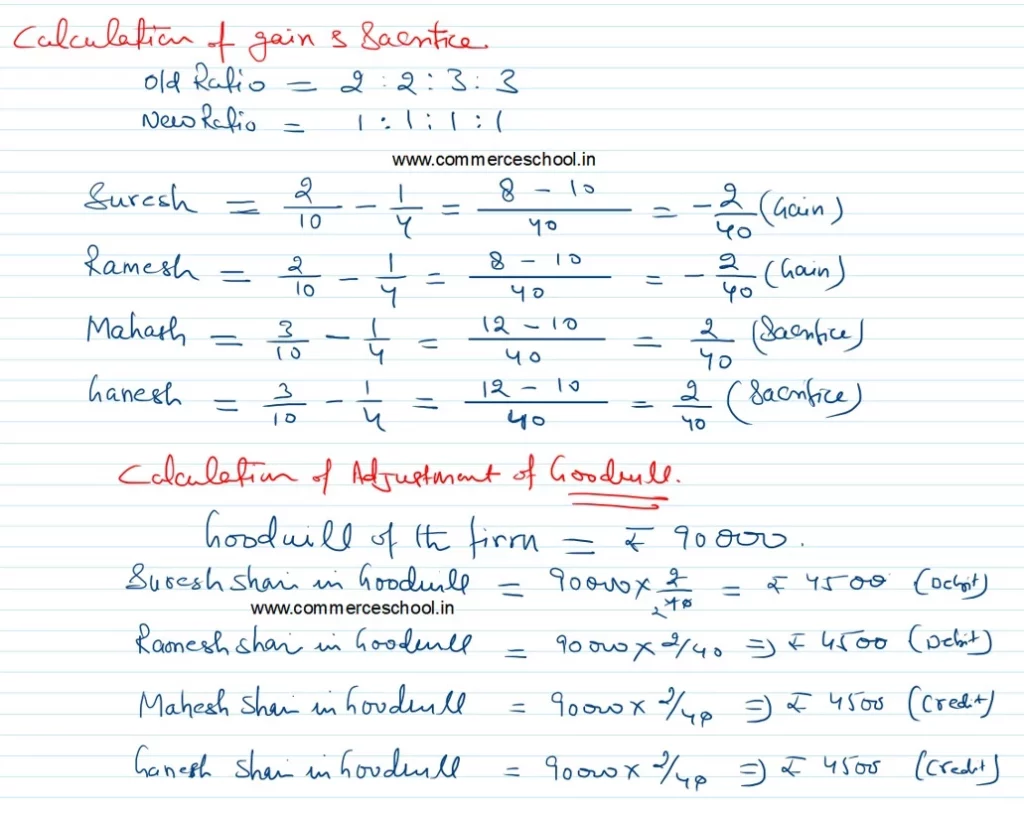 Calculation of gain & Sacrifice.
Old Ratio = 2 : 2 : 3 : 3
New Ratio = 1 : 1 : 1 : 1
www.commerceschool.in
Suresh = 2/10 - 1/4 = 8 - 10/40 = - 2/40 (Gain)
Ramesh = 2/10 - 1/4 = 8 - 10/40 = - 2/40 (Gain)
Mahash = 3/10 - 1/4 = 12 - 10/40 = 2/40 (Sacrifice)
Ganesh = 3/10 - 1/4 = 12 - 10/40 = 2/40 (Sacrifice)
Calculation of Adjustment of Goodwill.
Goodwill of the firm = ₹ 90000.
Suresh share in Goodwill = 90000 x 2/40 = ₹ 4500 (Debit)
www.commerceschool.in
Ramesh share in Goodwill = 90000 x 2/40 => ₹ 4500 (Debit)
Mahesh Share in Goodwill = 90000 x 2/40 => ₹ 4500 (Credit)
Ganesh Share in Goodwill = 90000 x 2/40 => ₹ 4500 (Credit)